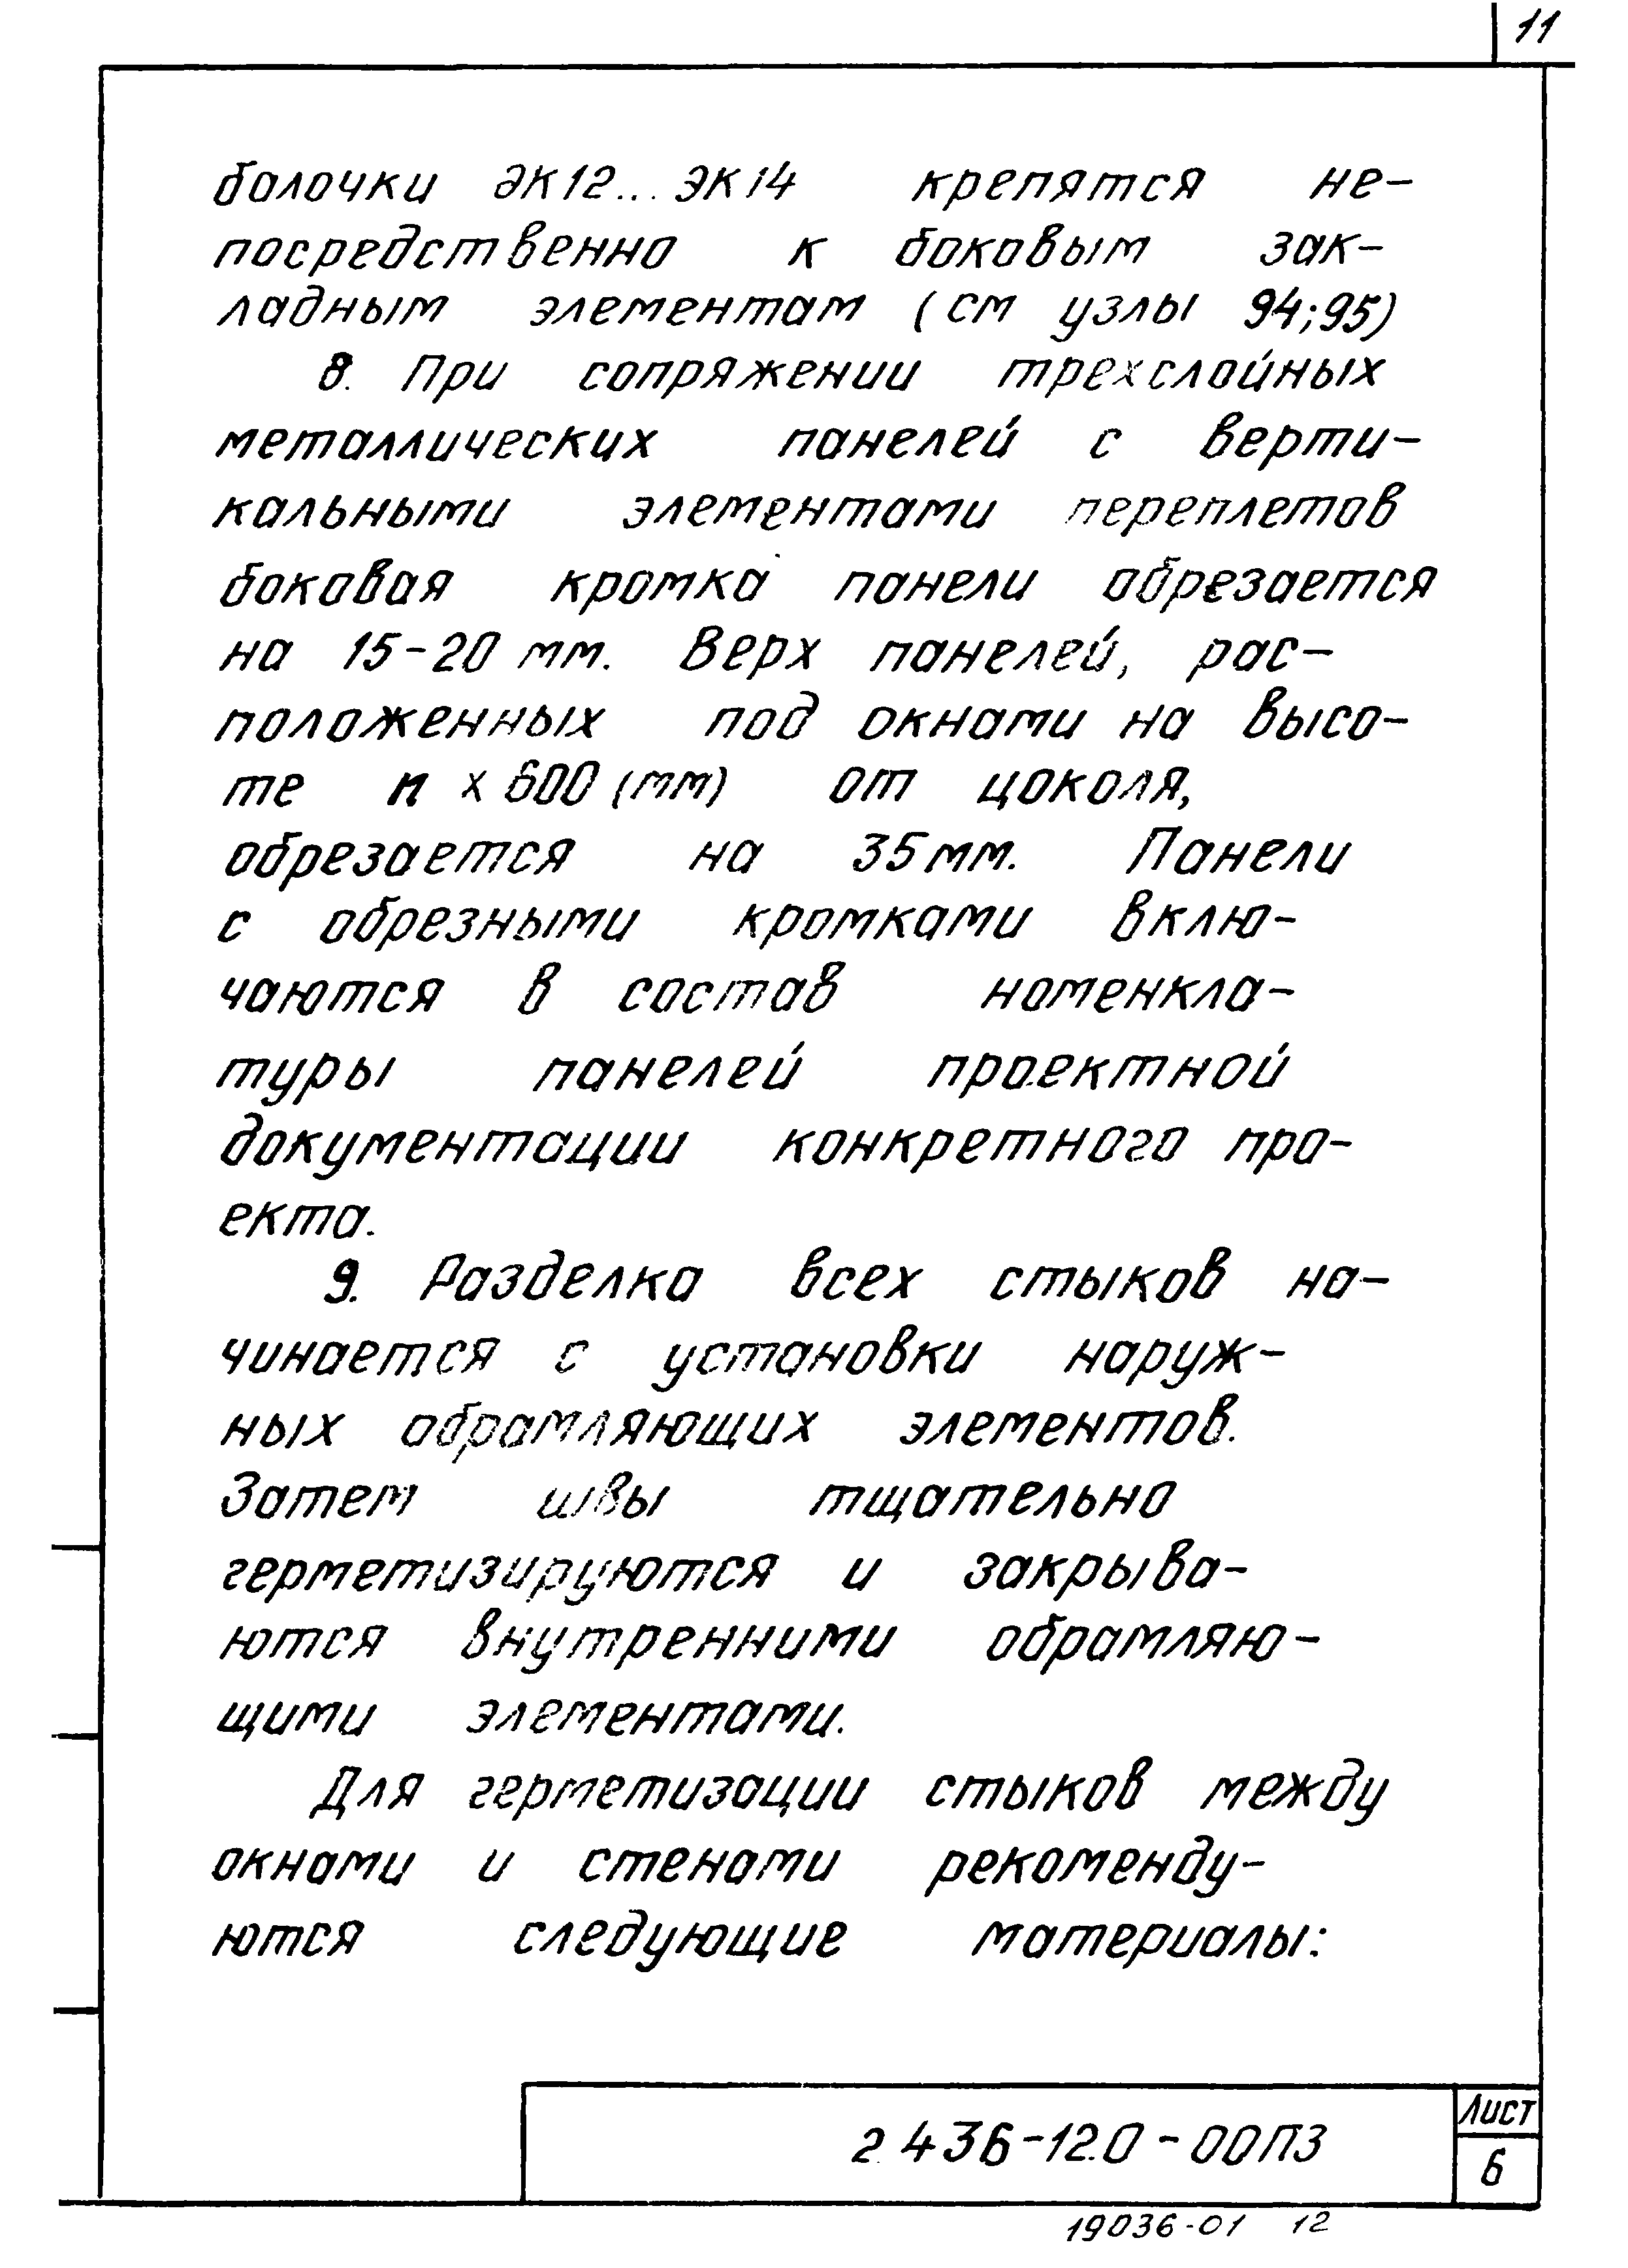 11
балочки ЭК12... ЭК14 крепятся не-
посредственно к боковым зак-
ладным элементам (см узлы 94;95)
8. При сопряжении трехслойных
металлических панелей с верти-
кальными элементами переплетов
боковая кромка панели обрезается
на 15-20 мм. Верх панелей, рас-
положенных под окнами на высо-
те n x 600 (мм) от цоколя,
обрезается на 35 мм. Панели
с обрезными кромками вклю-
чаются в состав номенкла-
туры панелей проектной
документации конкретного про-
екта.
9. Разделка всех стыков на-
чинается с установки наруж-
ных обрамляющих элементов.
Затем швы тщательно
герметизируются и закрыва-
ются внутренними обрамляю-
щими элементами.
Для герметизации стыков между
окнами и стенами рекоменду-
ются следующие материалы:
2.436-12.0-00ПЗ
Лист
6
19036-01 12